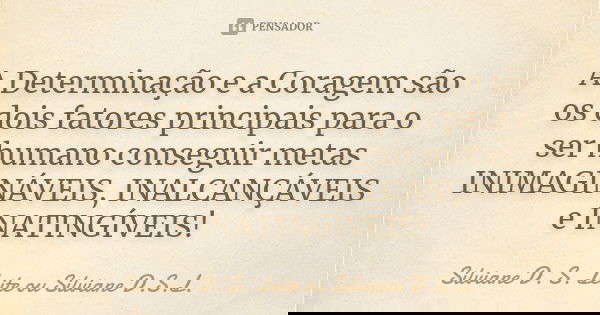 PENSADOR
A Determinação e a Coragem são
os dois fatores principais para o
ser humano conseguir metas
INIMAGINÁVEIS, INALCANÇÁVEIS
e INATINGÍVEIS!
Silviane D. S. Leite ou Silviane D.S.L.